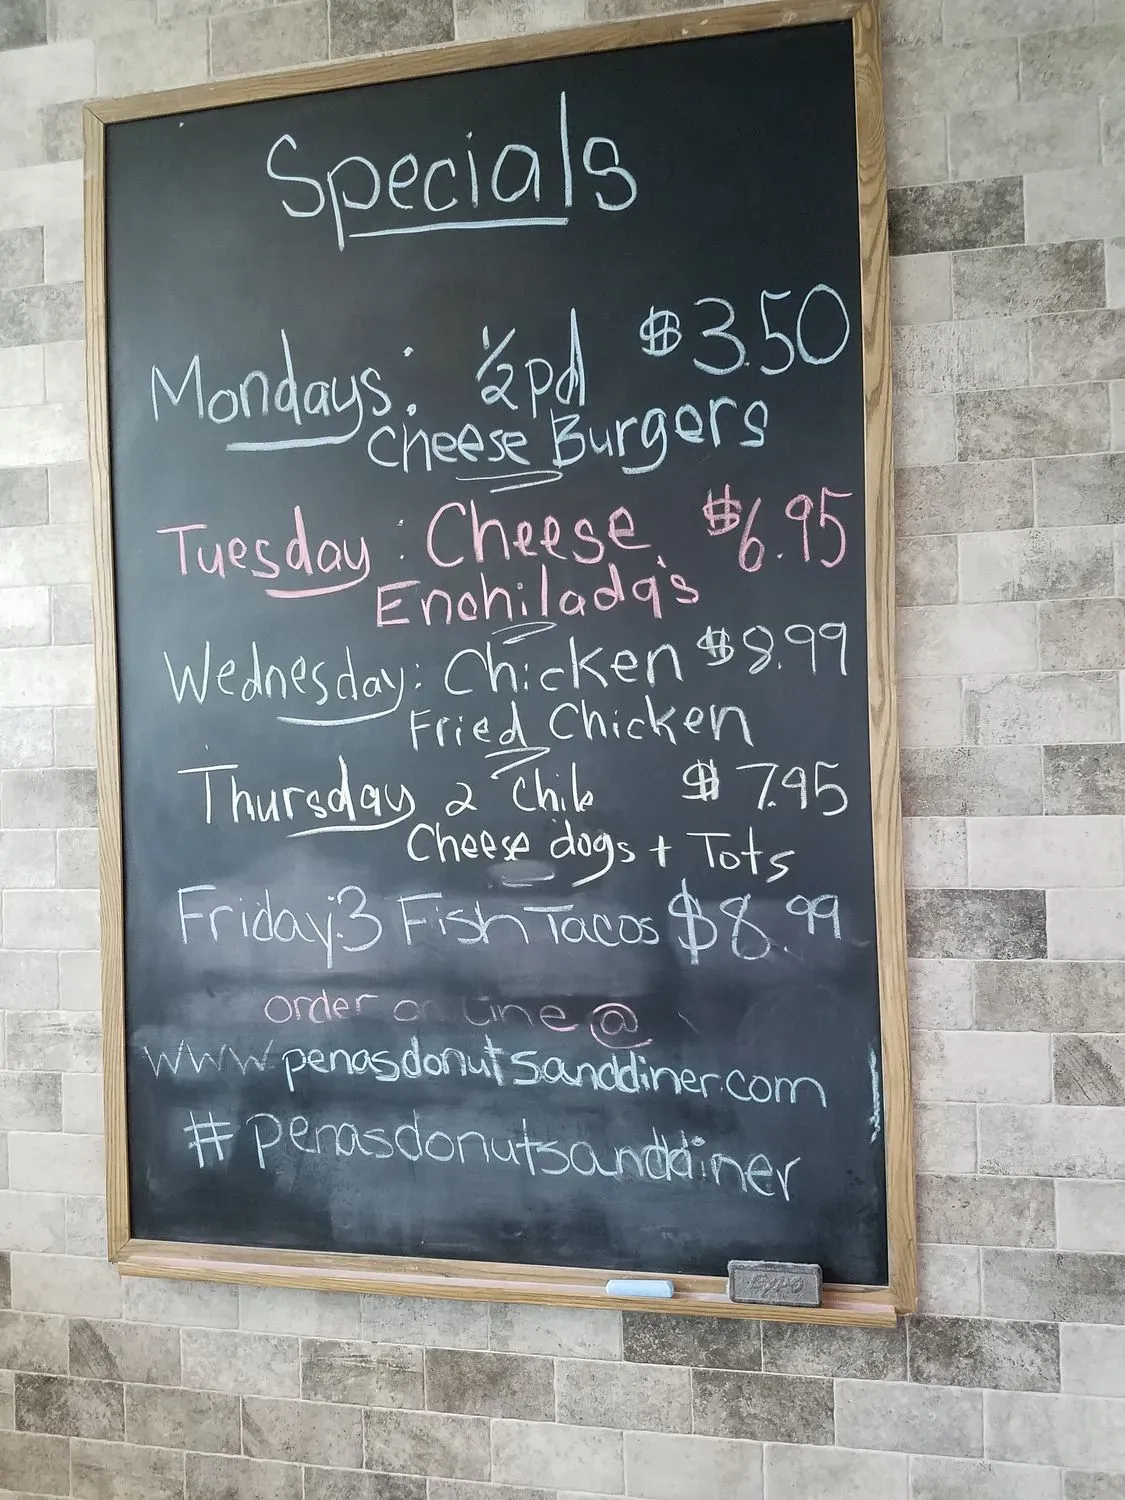 Specials
Mondays: ½ pd $3.50
Cheese Burgers
Tuesday: Cheese $6.95
Enchilada's
Wednesday: Chicken $8.99
Fried Chicken
Thursday 2 Chili $7.95
Cheese dogs + Tots
Friday: 3 Fish Tacos $8.99
order on Line @
www.penasdonutsanddiner.com
#penasdonutsanddiner